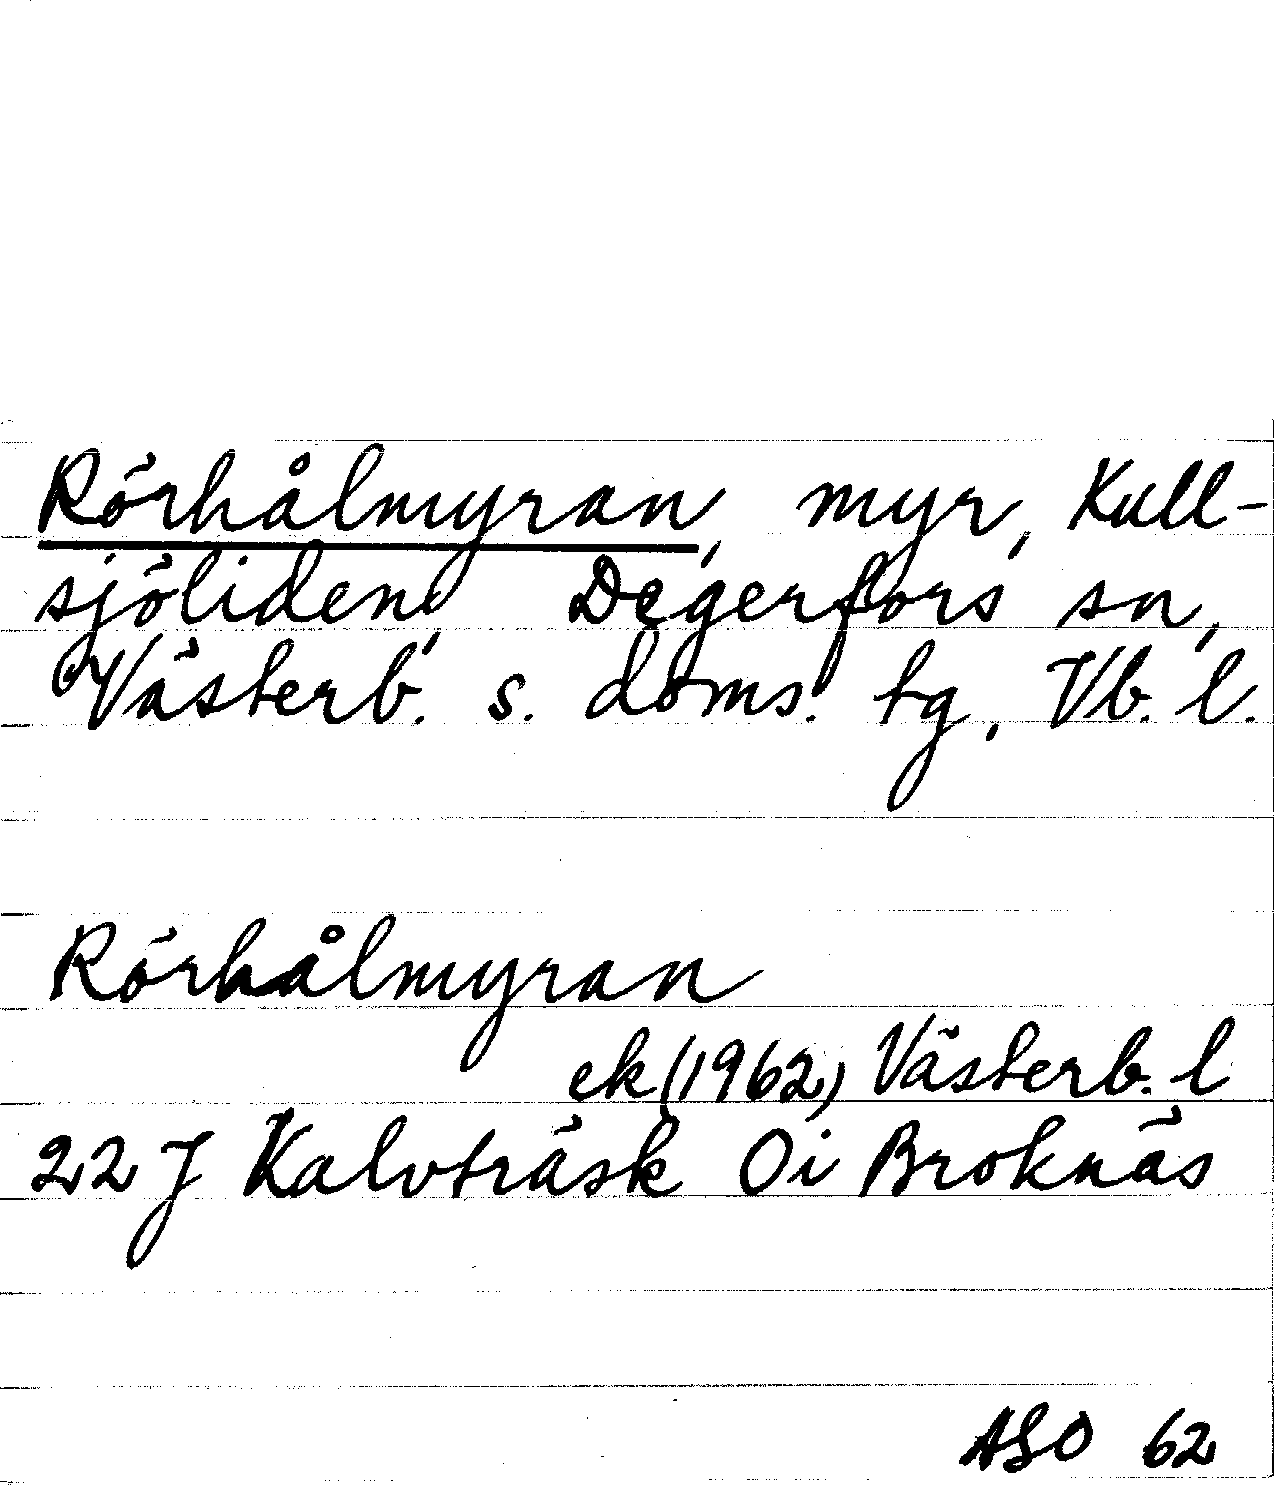 Rörhålmyran, myr, Kull-
sjöliden, Degerfors sn,
Västerb. s. doms. tg, Vb. l.
Rörhålmyran
ek (1962) Västerb. l
22 J Kalvträsk Oi Broknäs
ASO 62